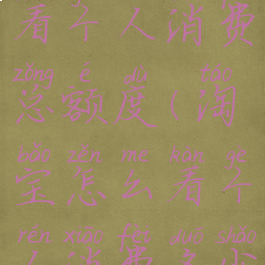 看个人消费
zǒng é dù táo
总额度(淘
bǎo zěn me kàn gè
宝怎么看个
rén xiāo fèi duō shǎo
人消费多少